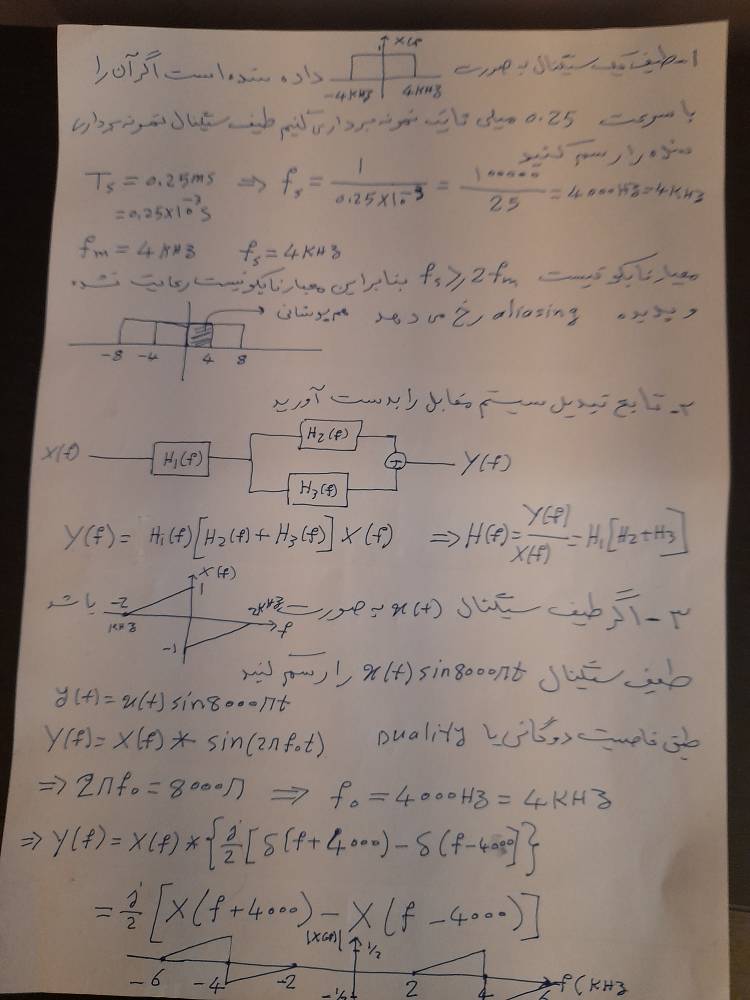 ۱- طیف یک سیگنال به صورت X(f) -4KHz 4KHz داده شده است اگر آن را
با سرعت 0.25 میلی ثانیه نمونه برداری کنیم طیف سیگنال نمونه برداری
شده را رسم کنید
Ts = 0.25ms ⇒ fs = 1 / 0.25×10⁻³ = 100000 / 25 = 4000Hz = 4KHz
= 0.25×10⁻³s
fm = 4KHz fs = 4KHz
معیار نایکوئیست fs ≥ 2fm بنابراین معیار نایکوئیست رعایت نشده
و پدیده aliasing رخ می دهد هم پوشانی
-8 -4 4 8
۲- تابع تبدیل سیستم مقابل را بدست آورید
X(f) H1(f) H2(f) H3(f) + Y(f)
Y(f) = H1(f)[H2(f) + H3(f)] X(f) ⇒ H(f) = Y(f) / X(f) = H1[H2+H3]
۳- اگر طیف سیگنال x(t) به صورت X(f) 1 -1 -2 KHz 2KHz f باشد
طیف سیگنال x(t) sin8000πt را رسم کنید
y(t) = x(t) sin8000πt
طبق خاصیت دوگانی یا Duality Y(f) = X(f) * sin(2πf₀t)
⇒ 2πf₀ = 8000π ⇒ f₀ = 4000Hz = 4KHz
⇒ Y(f) = X(f) * {j/2 [δ(f+4000) - δ(f-4000)]}
= j/2 [X(f+4000) - X(f-4000)]
|X(f)| 1/2
-6 -4 -2 -1/2 2 4 6 f(KHz